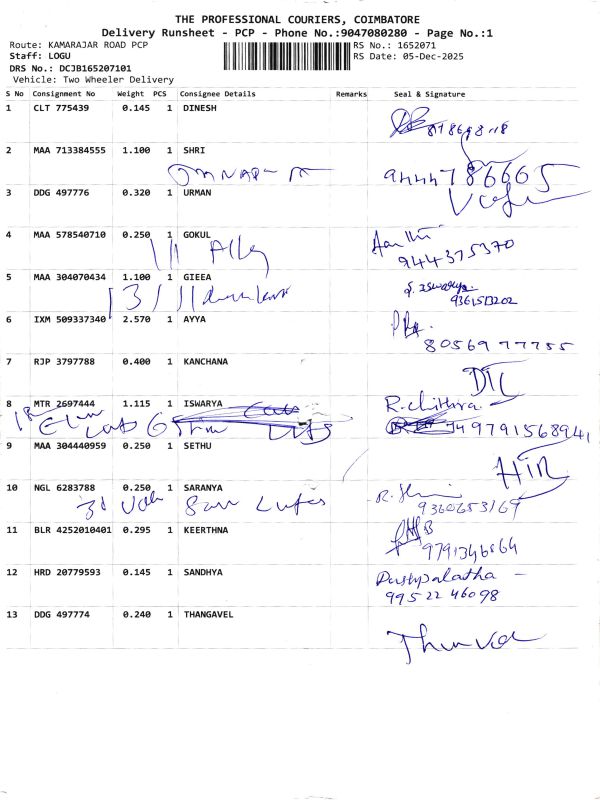 THE PROFESSIONAL COURIERS, COIMBATORE
Delivery Runsheet - PCP - Phone No.:9047080280 - Page No.:1
Route: KAMARAJAR ROAD PCP RS No.: 1652071
Staff: LOGU RS Date: 05-Dec-2025
DRS No.: DCJB165207101
Vehicle: Two Wheeler Delivery
S No Consignment No Weight PCS Consignee Details Remarks Seal & Signature
1 CLT 775439 0.145 1 DINESH
2 MAA 713384555 1.100 1 SHRI
9444786665
3 DDG 497776 0.320 1 URMAN
4 MAA 578540710 0.250 1 GOKUL
944375370
5 MAA 304070434 1.100 1 GIEEA
9361513202
6 IXM 509337340 2.570 1 AYYA
8056977755
7 RJP 3797788 0.400 1 KANCHANA
8 MTR 2697444 1.115 1 ISWARYA R.chithra
9791568941
9 MAA 304440959 0.250 1 SETHU
10 NGL 6283788 0.250 1 SARANYA
9360653169
11 BLR 4252010401 0.295 1 KEERTHNA
12 HRD 20779593 0.145 1 SANDHYA Pushpalatha
99522 46098
13 DDG 497774 0.240 1 THANGAVEL